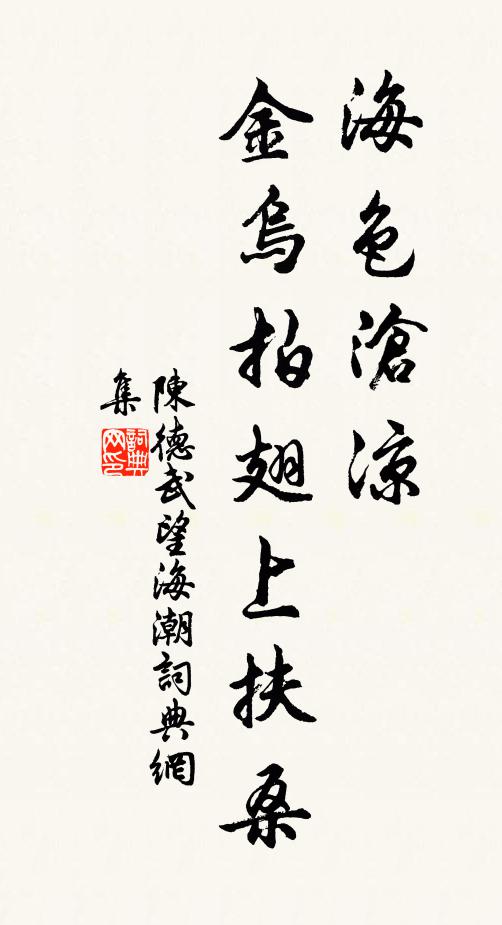 海色滄涼
金烏拍翅上扶桑
陳德武望海潮詞典網
集
詞典网印